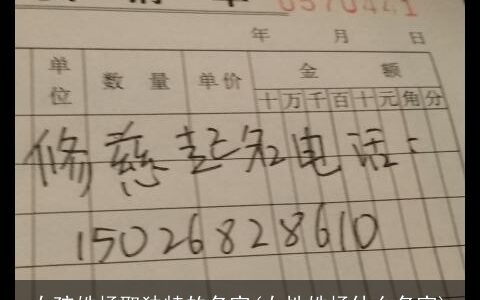 0570441
年 月 日
单位 数量 单价 金额
十万千百十元角分
修慈起名电话:
15026828610